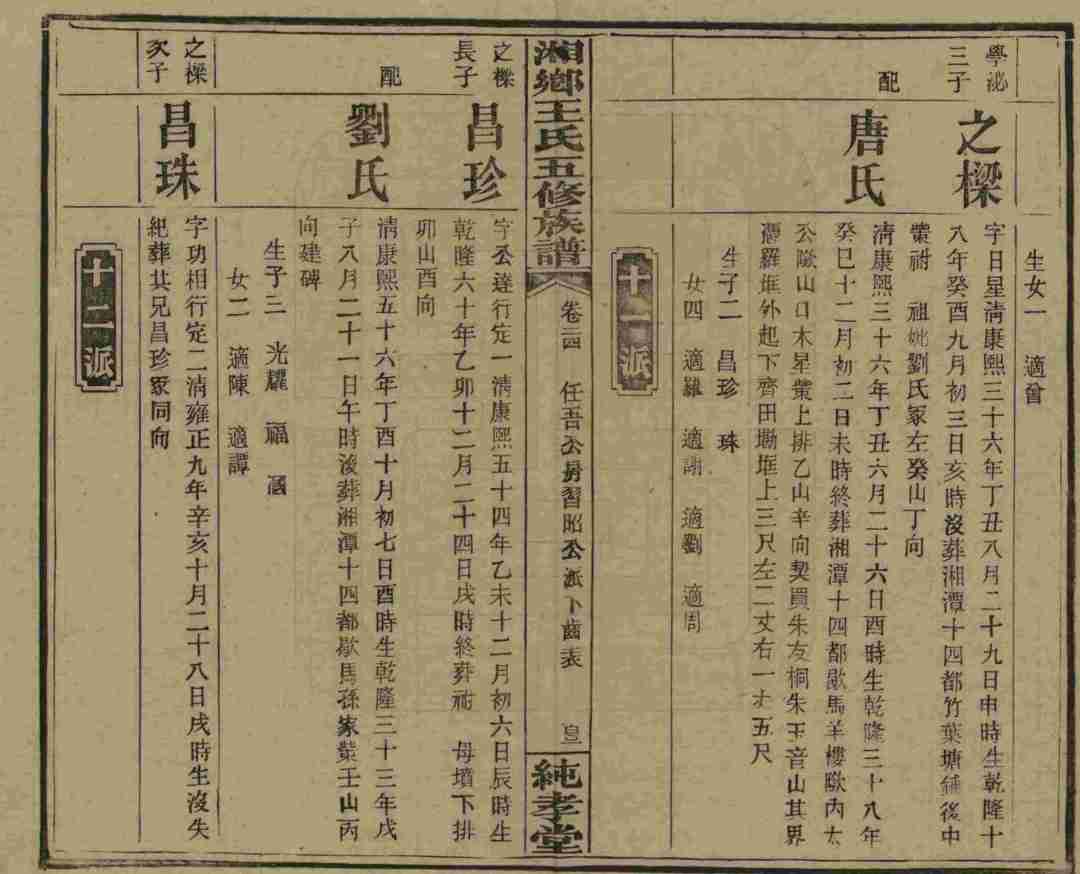 生女一 適曾
學泌
三子
之樑
字日星清康熙三十六年丁丑八月二十九日申時生乾隆十
八年癸酉九月初三日亥時沒葬湘潭十四都竹葉塘鋪後中
祖妣劉氏冢左癸山丁向
配
唐氏
清康熙三十六年丁丑六月二十六日酉時生乾隆三十八年
癸巳十二月初二日未時終葬湘潭十四都歇馬羊樓歐內太
公歐山口木星上排乙山辛向契買朱友桐朱玉音山其界
憑羅堆外起下齊田墈堆上三尺左二丈右一丈五尺
生子二 昌珍 珠
女四 適羅 適謝 適劉 適周
十一派
湘鄉王氏五修族譜
卷 任吾公房習昭公派下齒表
純孝堂
之樑
長子
昌珍
字公達行定一清康熙五十四年乙未十二月初六日辰時生
乾隆六十年乙卯十二月二十四日戌時終葬祔 母墳下排
卯山酉向
配
劉氏
清康熙五十六年丁酉十月初七日酉時生乾隆三十三年戊
子八月二十一日午時沒葬湘潭十四都歇馬孫家壬山丙
向建碑
生子三 光耀 福 國
女二 適陳 適譚
之樑
次子
昌珠
字功相行定二清雍正九年辛亥十月二十八日戌時生沒失
紀葬其兄昌珍冢同向
十二派